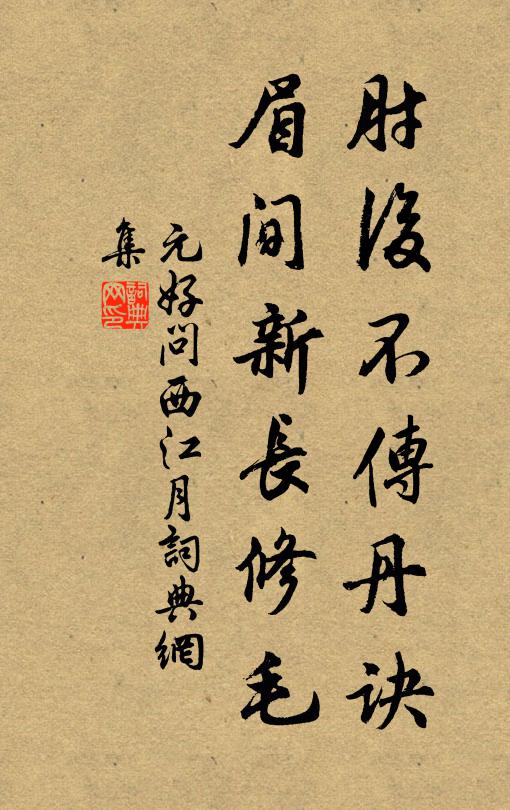 肘後不傳丹訣
眉間新長修毛
元好問西江月詞典網
集
詞典
网印